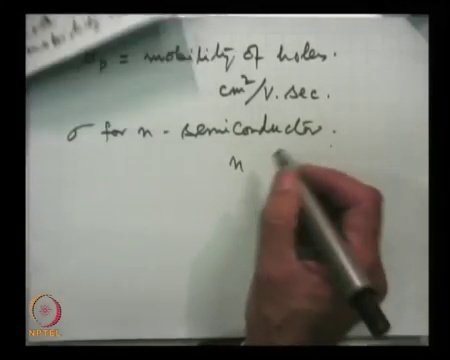 mobility
μp = mobility of holes.
cm²/V.sec.
σ for n - semiconductor.
n
NPTEL